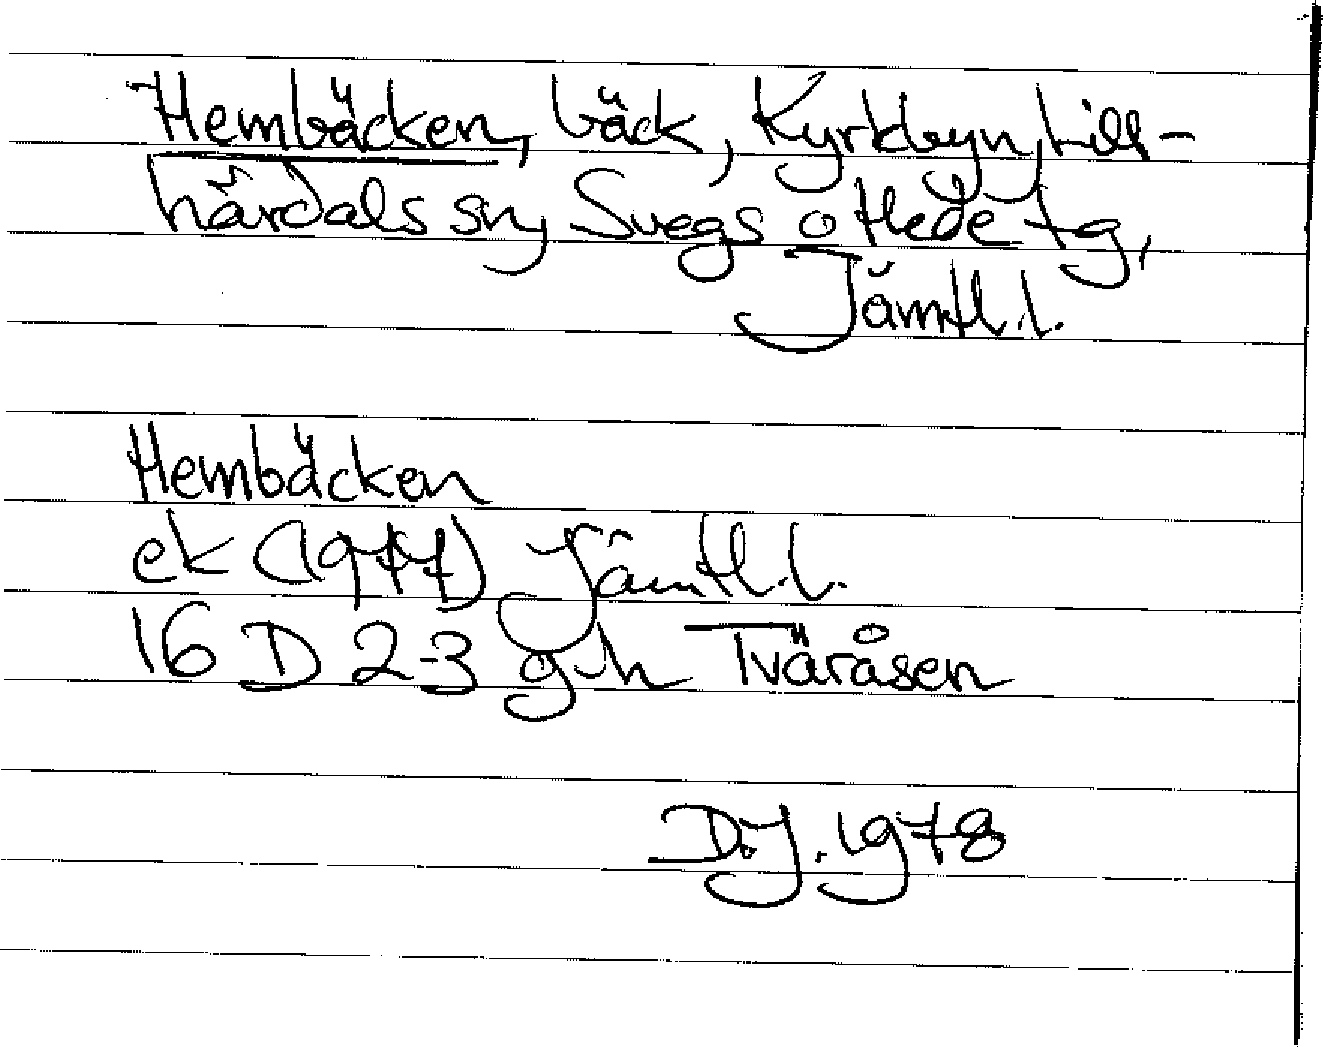 Hembäcken, bäck, Kyrkbyn, Lill-
härdals sn, Svegs o Hede tg,
Jämtl.l.
Hembäcken
ek (1977) Jämtl.l.
16 D 2-3 g-h Tväråsen
D.J. 1978